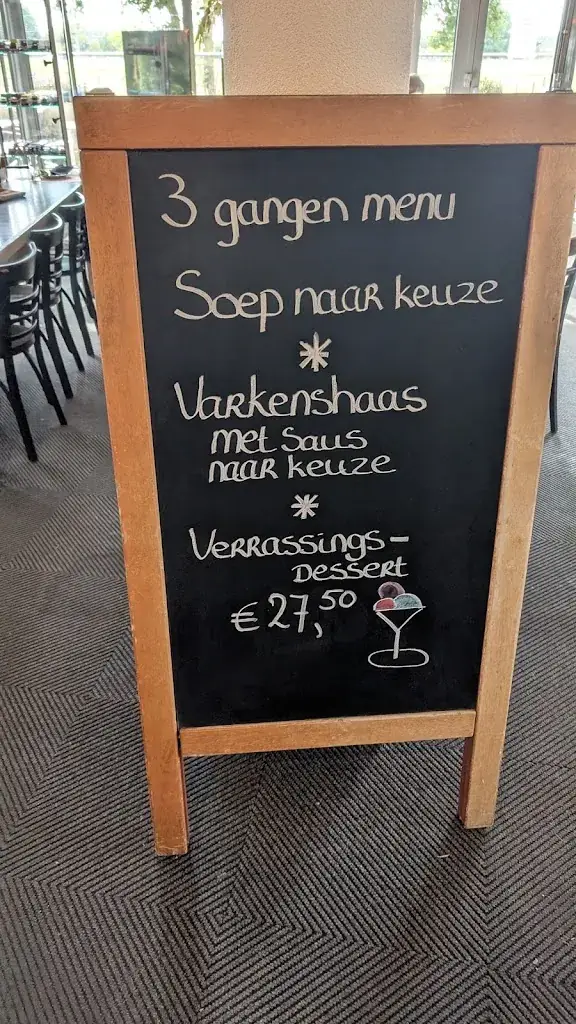 3 gangen menu
Soep naar keuze
*
Varkenshaas
met saus
naar keuze
*
Verrassings-
Dessert
€ 27,50